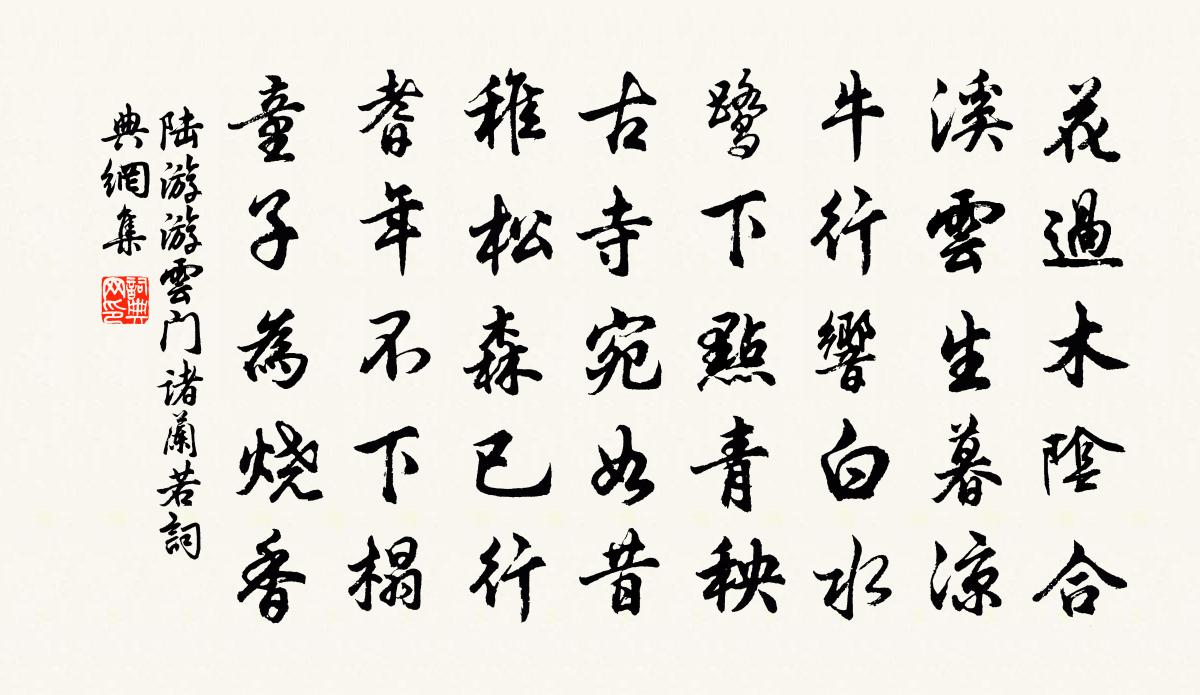 花過木陰合
溪雲生暮涼
牛行響白水
鷺下點青秧
古寺宛如昔
稚松森已行
耆年不下榻
童子為燒香
陸游游雲门諸蘭若詞
典網集
詞典
网印